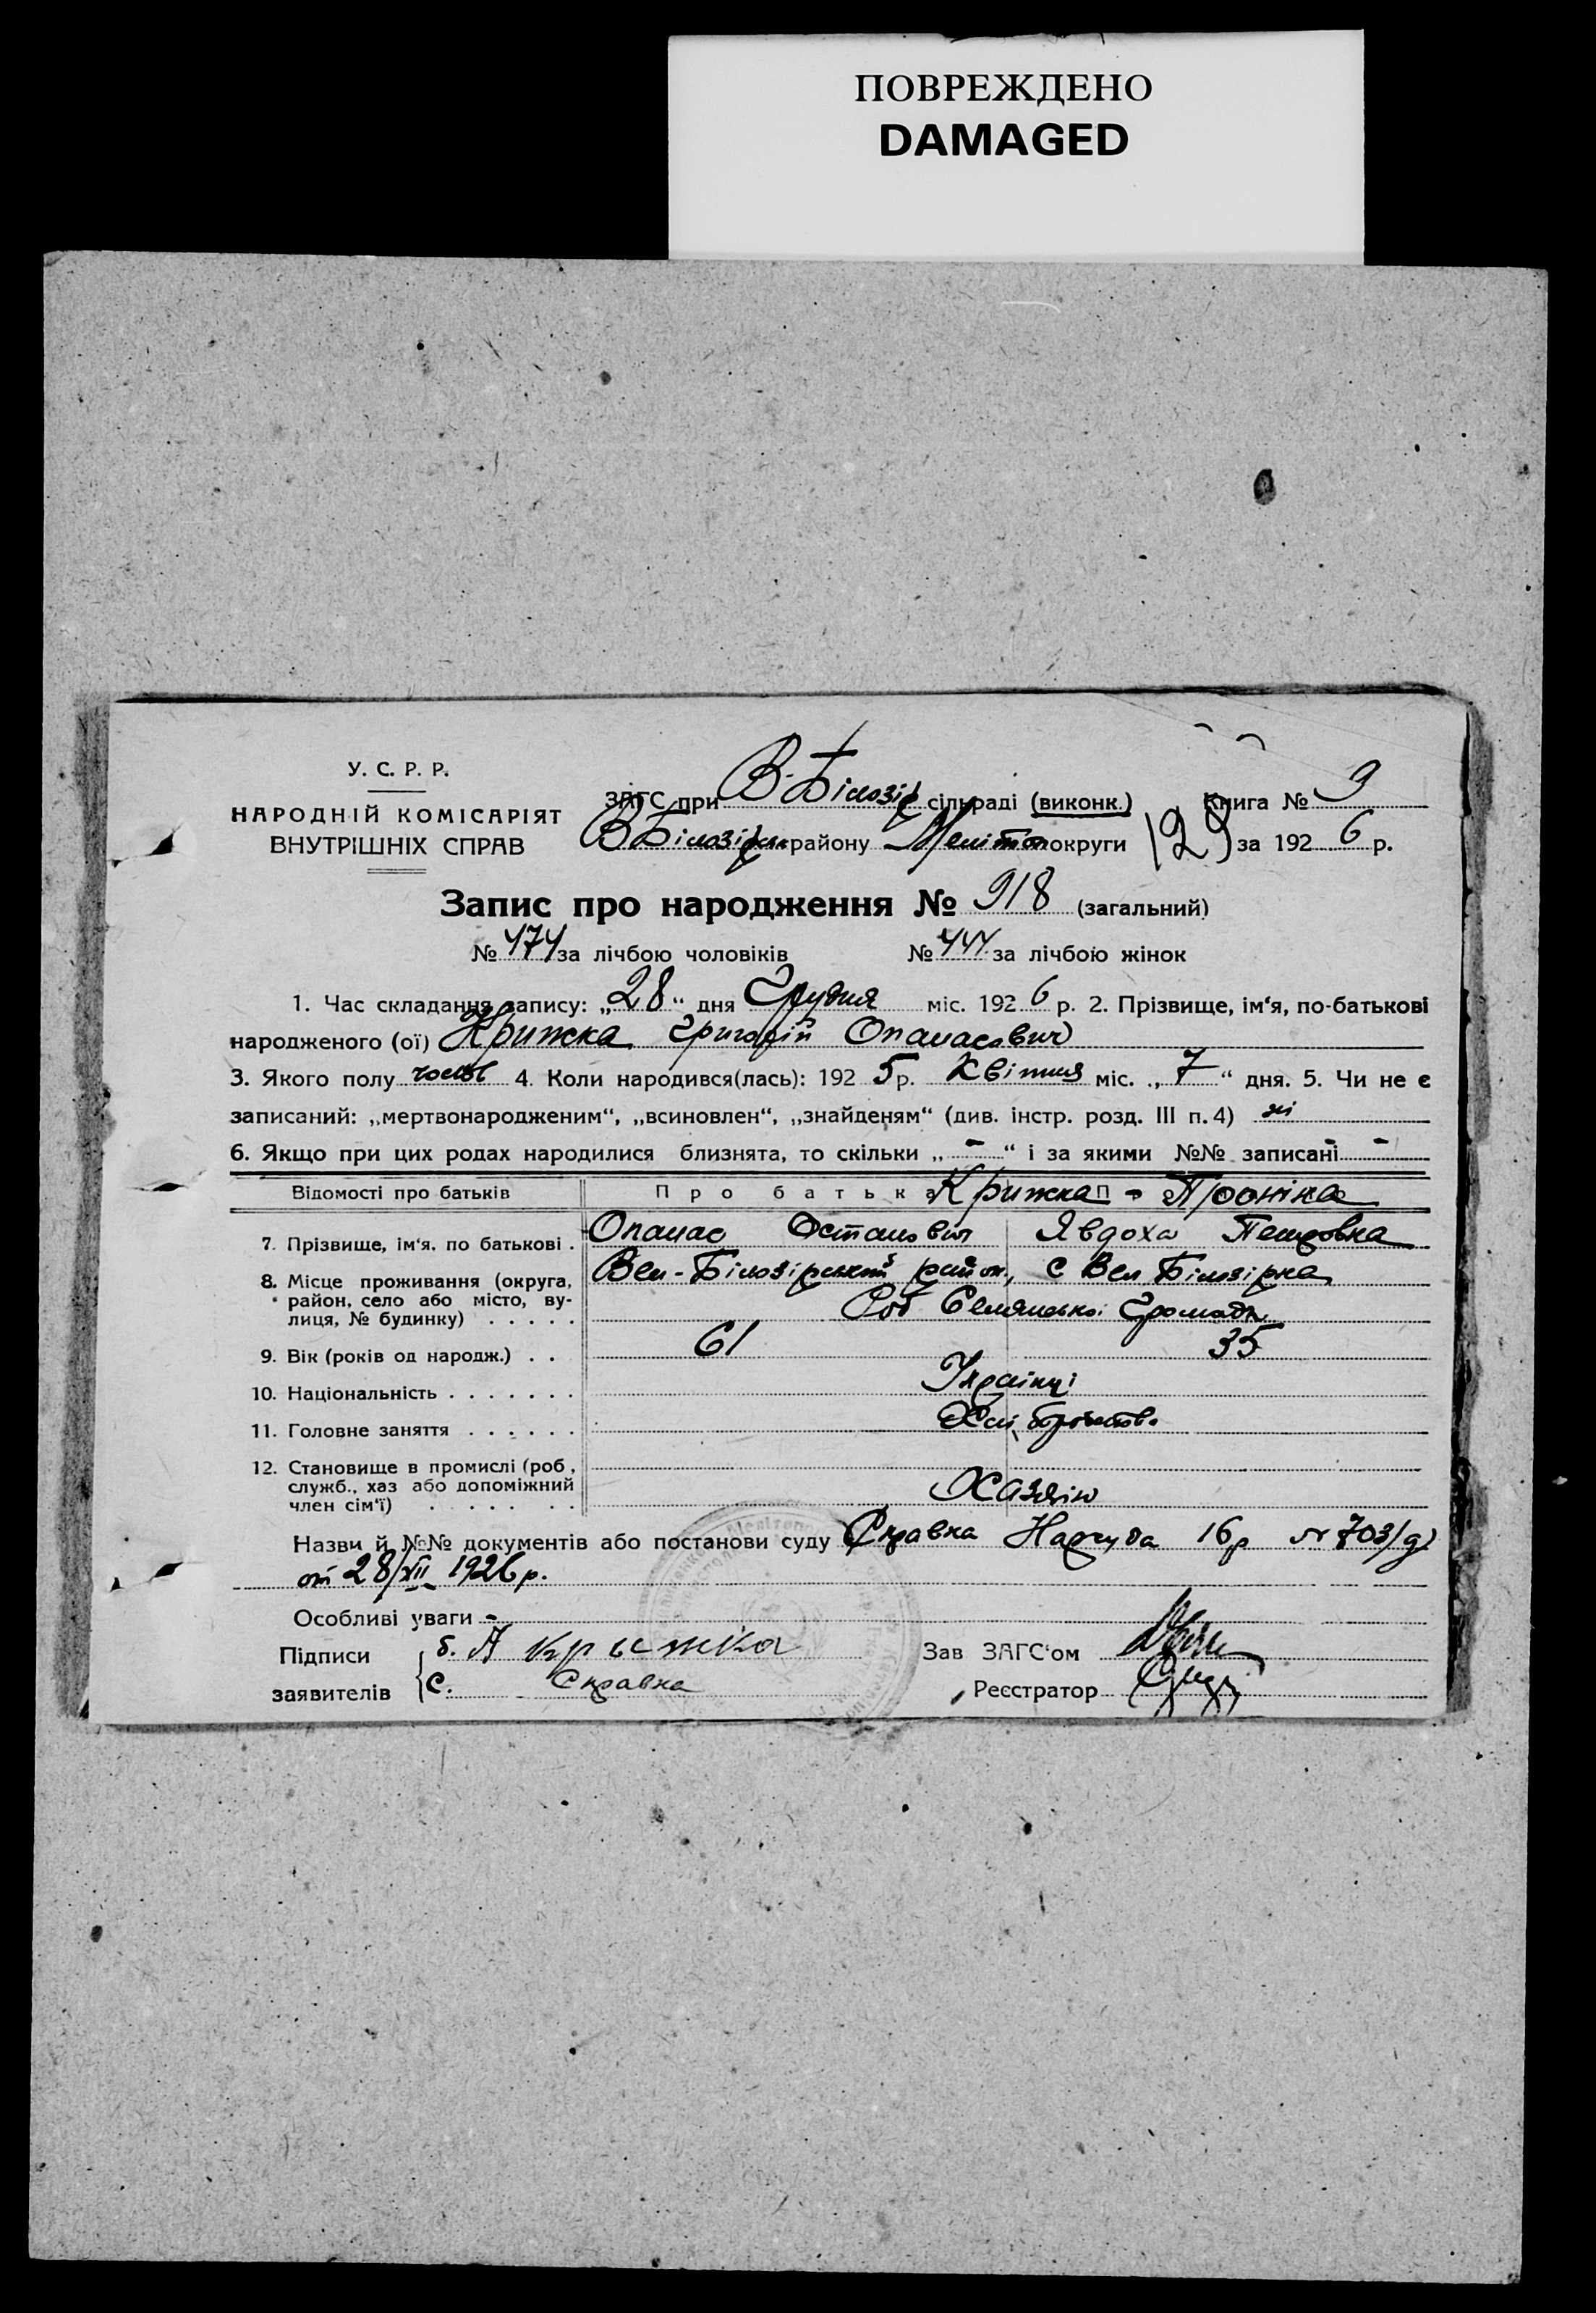 ПОВРЕЖДЕНО
DAMAGED
У. С. Р. Р.
НАРОДНІЙ КОМІСАРІЯТ
ВНУТРІШНІХ СПРАВ
ЗАГС при В-Білозір сільраді (виконк.) Книга № 9
В Білозірк району Меліто округи 129 за 1926 р.
Запис про народження № 918 (загальний)
№ 474 за лічбою чоловіків № 444 за лічбою жінок
1. Час складання запису: „28“ дня Грудня міс. 1926 р. 2. Прізвище, ім‘я, по-батькові
народженого (ої) Крижка Григорій Опанасович
3. Якого полу чолов 4. Коли народився(лась): 1925 р. Квітня міс. „7“ дня. 5. Чи не є
записаний: „мертвонародженим“, „всиновлен“, „знайденям“ (див. інстр. розд. III п. 4) ні
6. Якщо при цих родах народилися близнята, то скільки „-“ і за якими №№ записані -
Відомості про батьків Про батька Крижка П - Проніна
7. Прізвище, ім‘я. по батькові . Опанас Остапович Явдоха Петровна
8. Місце проживання (округа, Вел-Білозірський район, с Вел Білозірка
район, село або місто, ву-
лиця, № будинку) . . . . . Громади
9. Вік (років од народж.) . . 61 35
10. Національність . . . . . . . Українці
11. Головне заняття . . . . . . Хліборобство
12. Становище в промислі (роб,
служб., хаз або допоміжний Хазяїн
член сім‘ї) . . . . . . .
Назви й №№ документів або постанови суду Справка Нарсуда 16 р № 703/д
от 28/XII 1926 р.
Особливі уваги -
Підписи б. А Крыжка Зав ЗАГС‘ом
заявителів с. Справка Реєстратор